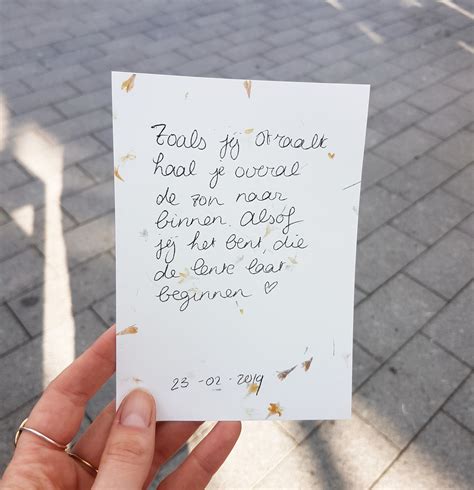 Zoals jij straalt
haal je overal
de zon naar
binnen. Alsof
jij het bent, die
de lente laat
beginnen ♡
23-02-2019